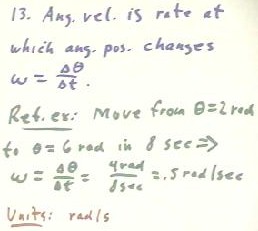 13. Ang. vel. is rate at
which ang. pos. changes
ω = Δθ/Δt .
Ref. ex: Move from θ=2 rad
to θ=6 rad in 8 sec =>
ω = Δθ/Δt = 4 rad/8 sec = .5 rad/sec
Units: rad/s